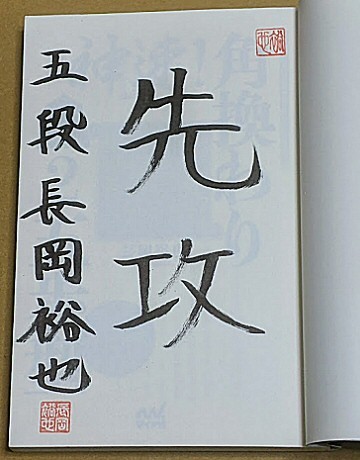 先攻
五段 長岡裕也